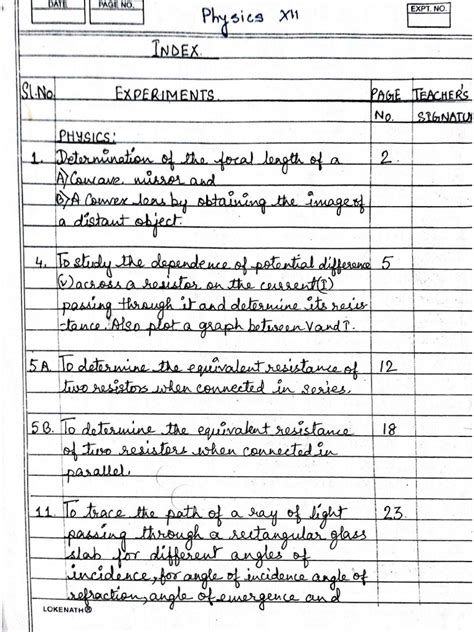 DATE
PAGE NO.
EXPT. NO.
Physics XII
INDEX.
Sl.No. EXPERIMENTS. PAGE No. TEACHER'S SIGNATU
PHYSICS:
1. Determination of the focal length of a 2.
A) Concave mirror and
B) A Convex lens by obtaining the image of
a distant object.
4. To study the dependence of potential difference 5
(V) across a resistor on the current (I)
passing through it and determine its resis-
-tance. Also plot a graph between V and I.
5A. To determine the equivalent resistance of 12
two resistors when connected in series.
5B. To determine the equivalent resistance 18
of two resistors when connected in
parallel.
11. To trace the path of a ray of light 23.
passing through a rectangular glass
slab for different angles of
incidence, for angle of incidence angle of
refraction, angle of emergence and
LOKENATH®